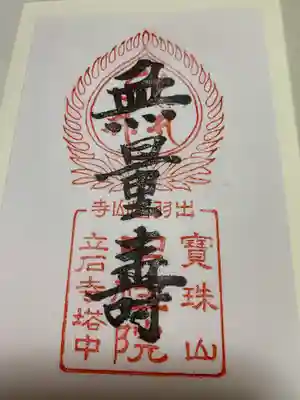 無量壽
出羽 山寺
寶珠山
院
立石寺塔中